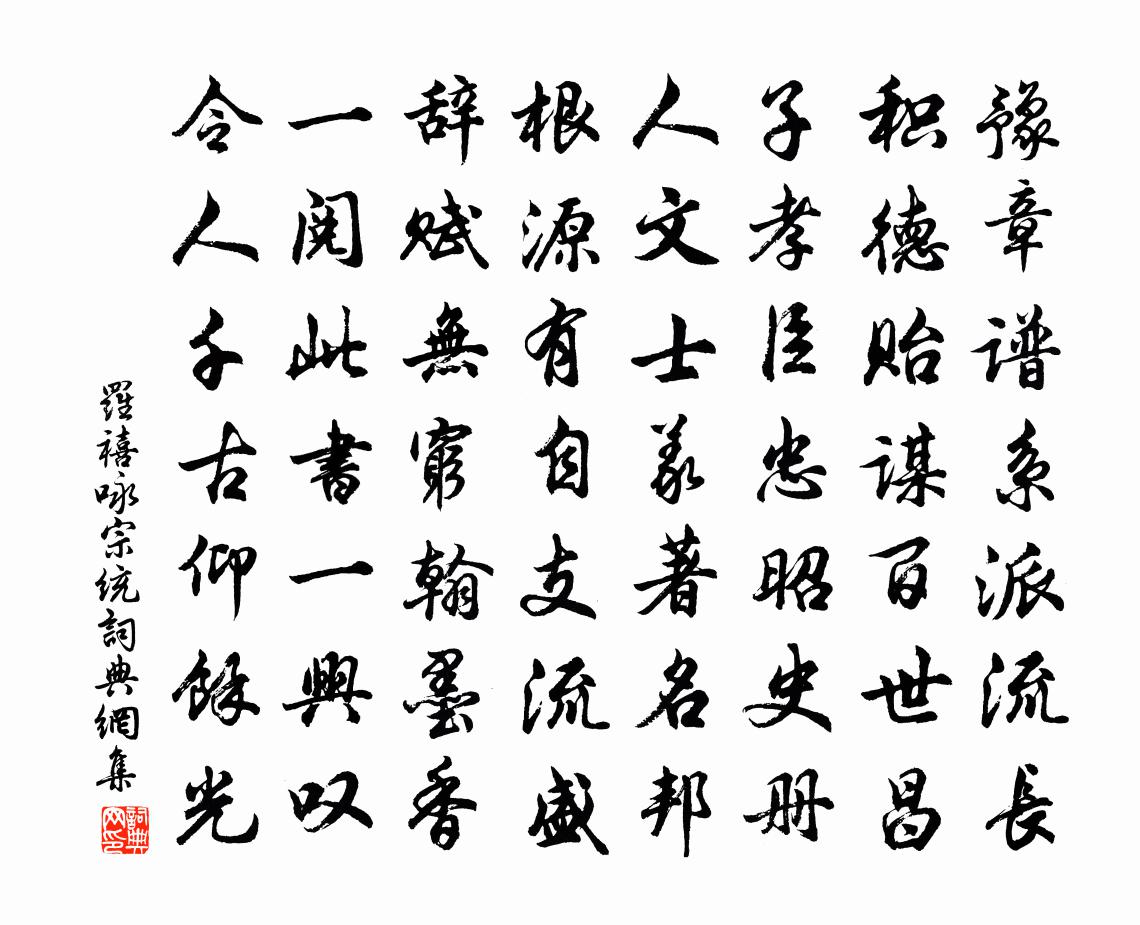 豫章谱系派流长
积德贻谋百世昌
子孝臣忠昭史册
人文士义著名邦
根源有自支流盛
辞赋無窮翰墨香
一阅此書一興叹
令人千古仰餘光
羅禧咏宗统詞典網集
詞典网印